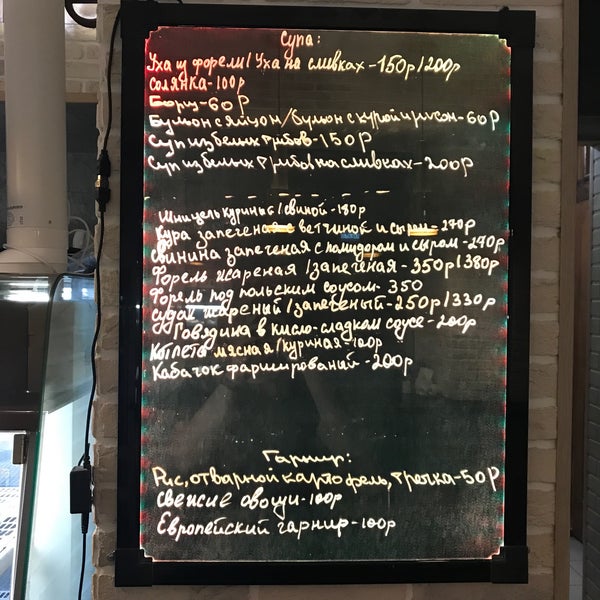 Супа:
Уха из форели/Уха на сливках-150р/200р
Солянка-100р
Борщ-60Р
Бульон с яйцом/бульон с курой и рисом-60Р
Суп из белых грибов-150Р
Суп из белых грибов на сливках-200Р
Шницель куриный/свиной-180р
Кура запеченая с ветчиной и сыром-270р
Свинина запеченая с помидором и сыром-270р
Форель жареная/запеченая-350р/380р
Форель под польским соусом-350
Судак жареный/запеченый-250р/330р
Говядина в кисло-сладком соусе-200р
Котлета мясная/куриная-100р
Кабачок фаршированый-200р
Гарнир:
Рис, отварной картофель, гречка-50Р
Свежие овощи-100р
Европейский гарнир-100р